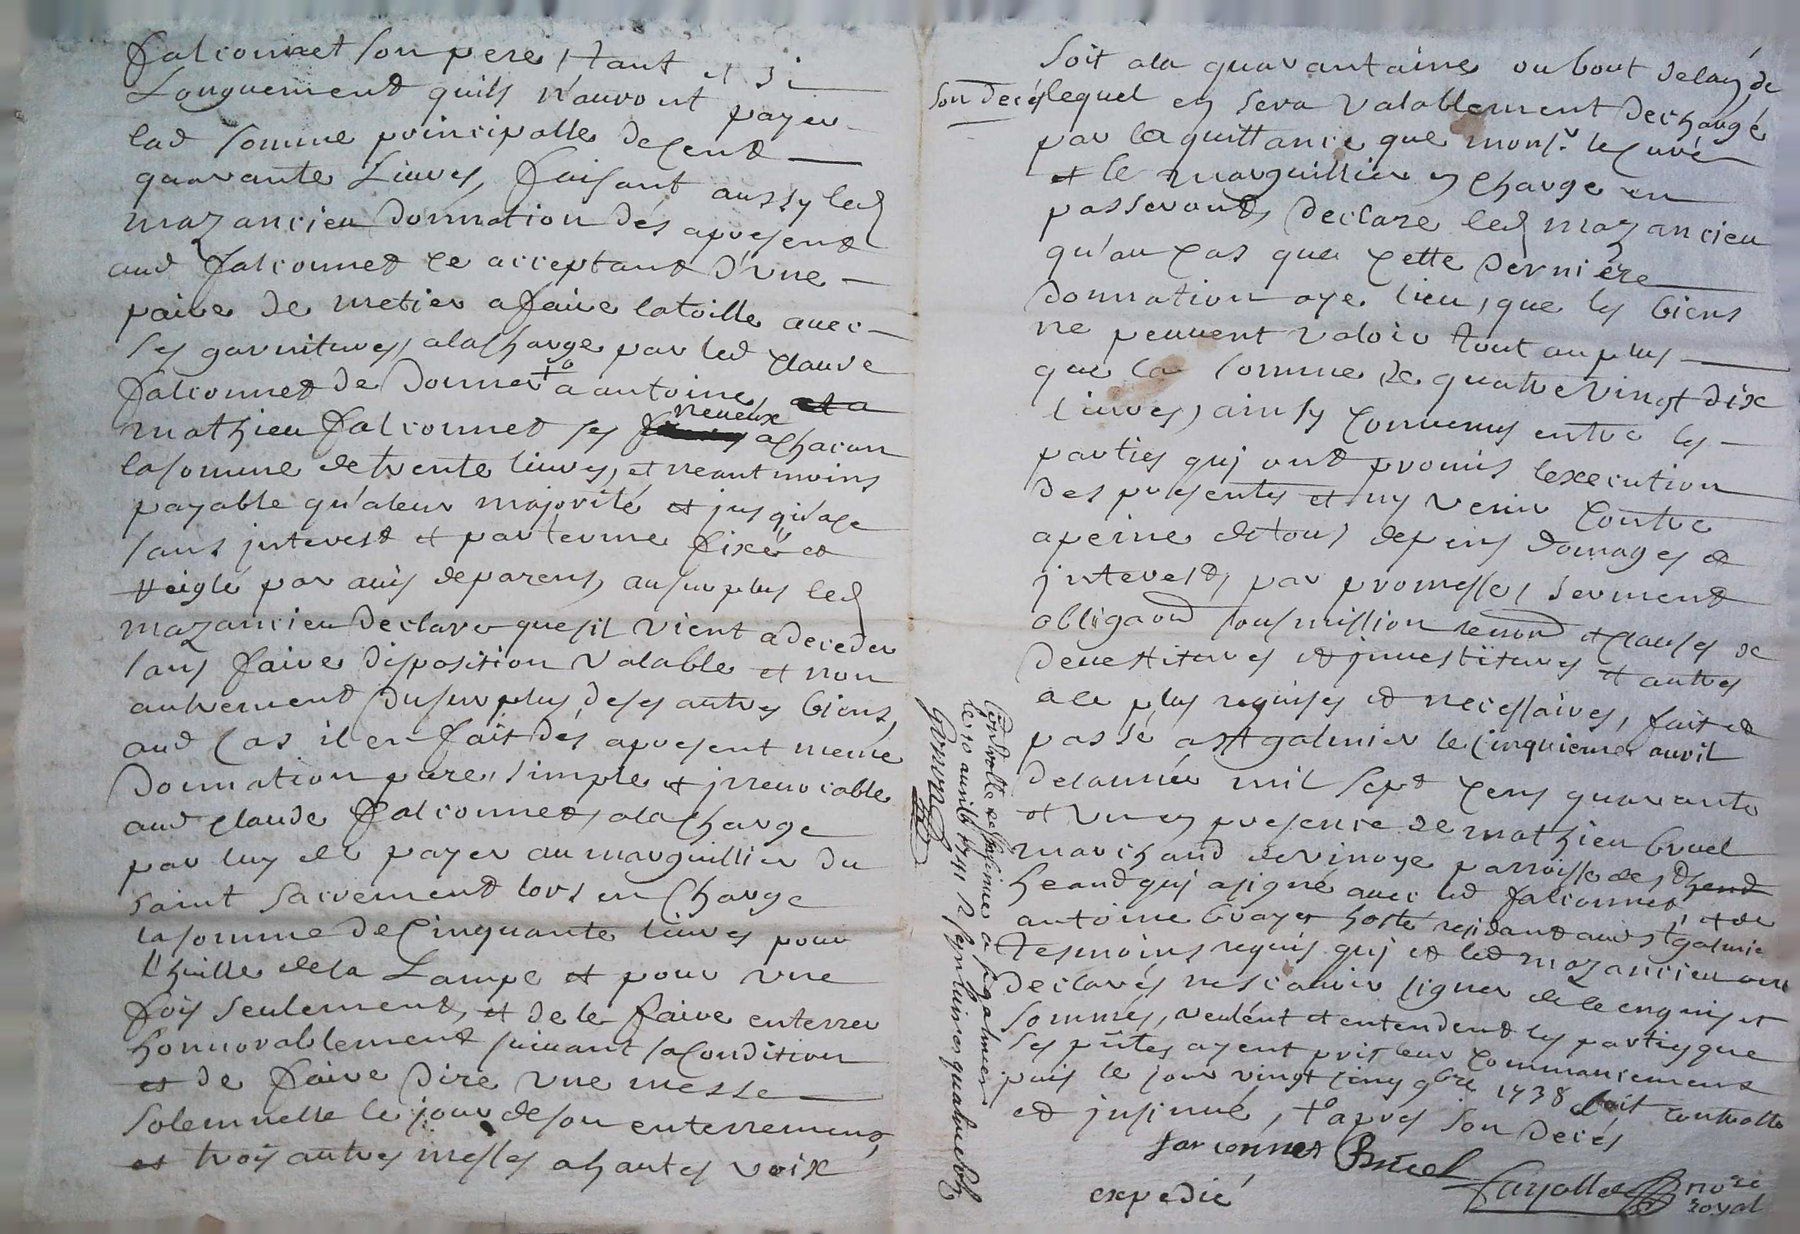 falconnet son pere, tant et si
Longuement quils n'auront payer
lad somme principalle de cent
quarante Liures, faisant aussy led
mazancieu donnation dés apresent
aud falconnet ce acceptant d'une
paire de metier a faire latoille auec
ses garnitures, alacharge par led claude
falconnet de donner +o a antoine et a
mathieu falconnet ses neueux achacun
lasomme de trente liures, et neantmoins
payable qu'aleur majorité et jusqu'ace
sans jnterest et parterme fixé et
reiglé par auis deparens, ausurplus led
mazancieu declare que sil vient adeceder
sans faire disposition valable et non
autrement dusurplus deses autres biens,
aud cas il en fait dés apresent meme
donnation pure, simple et jrreuocable
aud claude falconnet, alacharge
par luy de payer au marguillier du
saint sacrement lors en charge
lasomme de cinquante liures pour
l'huille dela Lampe et pour une
fois seulement, et de le faire enterrer
honnorablement suiuant sacondition
et de faire dire une messe
solemnelle le jour deson enterrement,
et trois autres messes ahautes voix
soit ala quarantaine ou bout delan, de
son decés lequel en sera valablement dechargé
par la quittance que monsr. le curé
et le marguillier en charge en
passeront, declare led mazancieu
qu'au cas que cette derniere
donnation aye lieu, que les biens
ne peuuent valoir tout au plus
que la somme de quatre vingt dix
liures, ainsy conuenus entre les
parties quj ont promis lexecution
des presentes et ny venir contre
apeine detous depens domages et
jnterests, par promesses, serment
obligaon sousmission renon et clauses de
deuestitures et jnuestitures et autres
ale plus requises et necessaires, fait et
passé a st galmier le cinquieme auril
delannée mil sept cens quarante
et un en presence de mathieu bruel
marchand de vinoye parroisse de st hend
heand quj asigné auec led falconnet, et de
antoine boyer hoste residant aud st galmier
tesmoins requis quj et led mazancieu ont
declarés nescauoir signer dele enquis et
sommés, veulent et entendent les parties que
les pntes ayent pris leur commancement
puis le jour vingt cinq 9bre 1738 soit controllé
et jnsinué, +o apres son decés
farconnet Bruel
expedié
fayolle nore
royal
Controllé et jnsinué a st galmier
le 10 auril 1741 R sept liures quatre sols